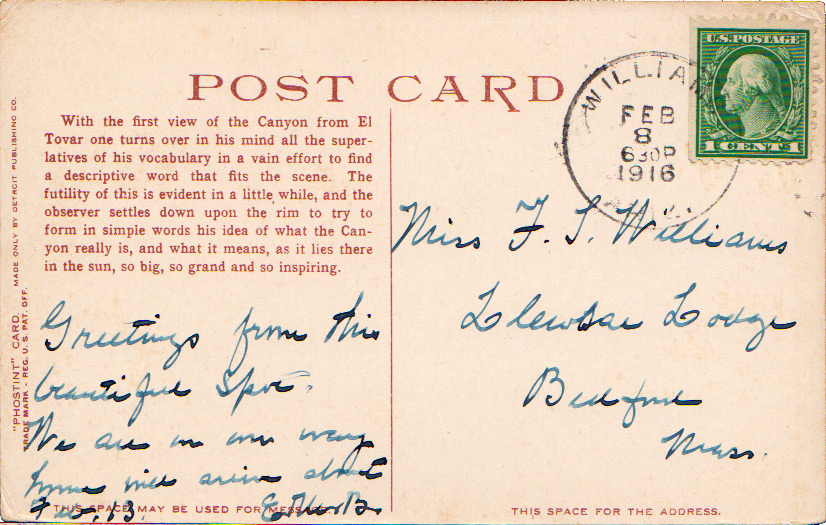 POST CARD
With the first view of the Canyon from El
Tovar one turns over in his mind all the super-
latives of his vocabulary in a vain effort to find
a descriptive word that fits the scene. The
futility of this is evident in a little while, and the
observer settles down upon the rim to try to
form in simple words his idea of what the Can-
yon really is, and what it means, as it lies there
in the sun, so big, so grand and so inspiring.
"PHOSTINT" CARD. MADE ONLY BY DETROIT PUBLISHING CO.
TRADE MARK REG. U. S. PAT. OFF.
Greetings from this
beautiful spot.
We are on our way
home will arrive about
Feb. 13.
THIS SPACE MAY BE USED FOR MESSAGE
U.S. POSTAGE
1 CENT 1
WILLIAM
FEB
8
630P
1916
Miss F. S. Williams
Lodge
Bedford
Mass.
THIS SPACE FOR THE ADDRESS.